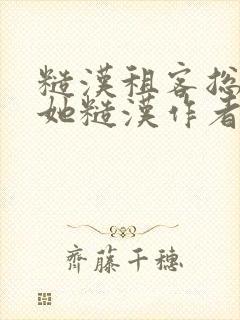 糙漢租客总
她糙漢作者
齊藤千穗